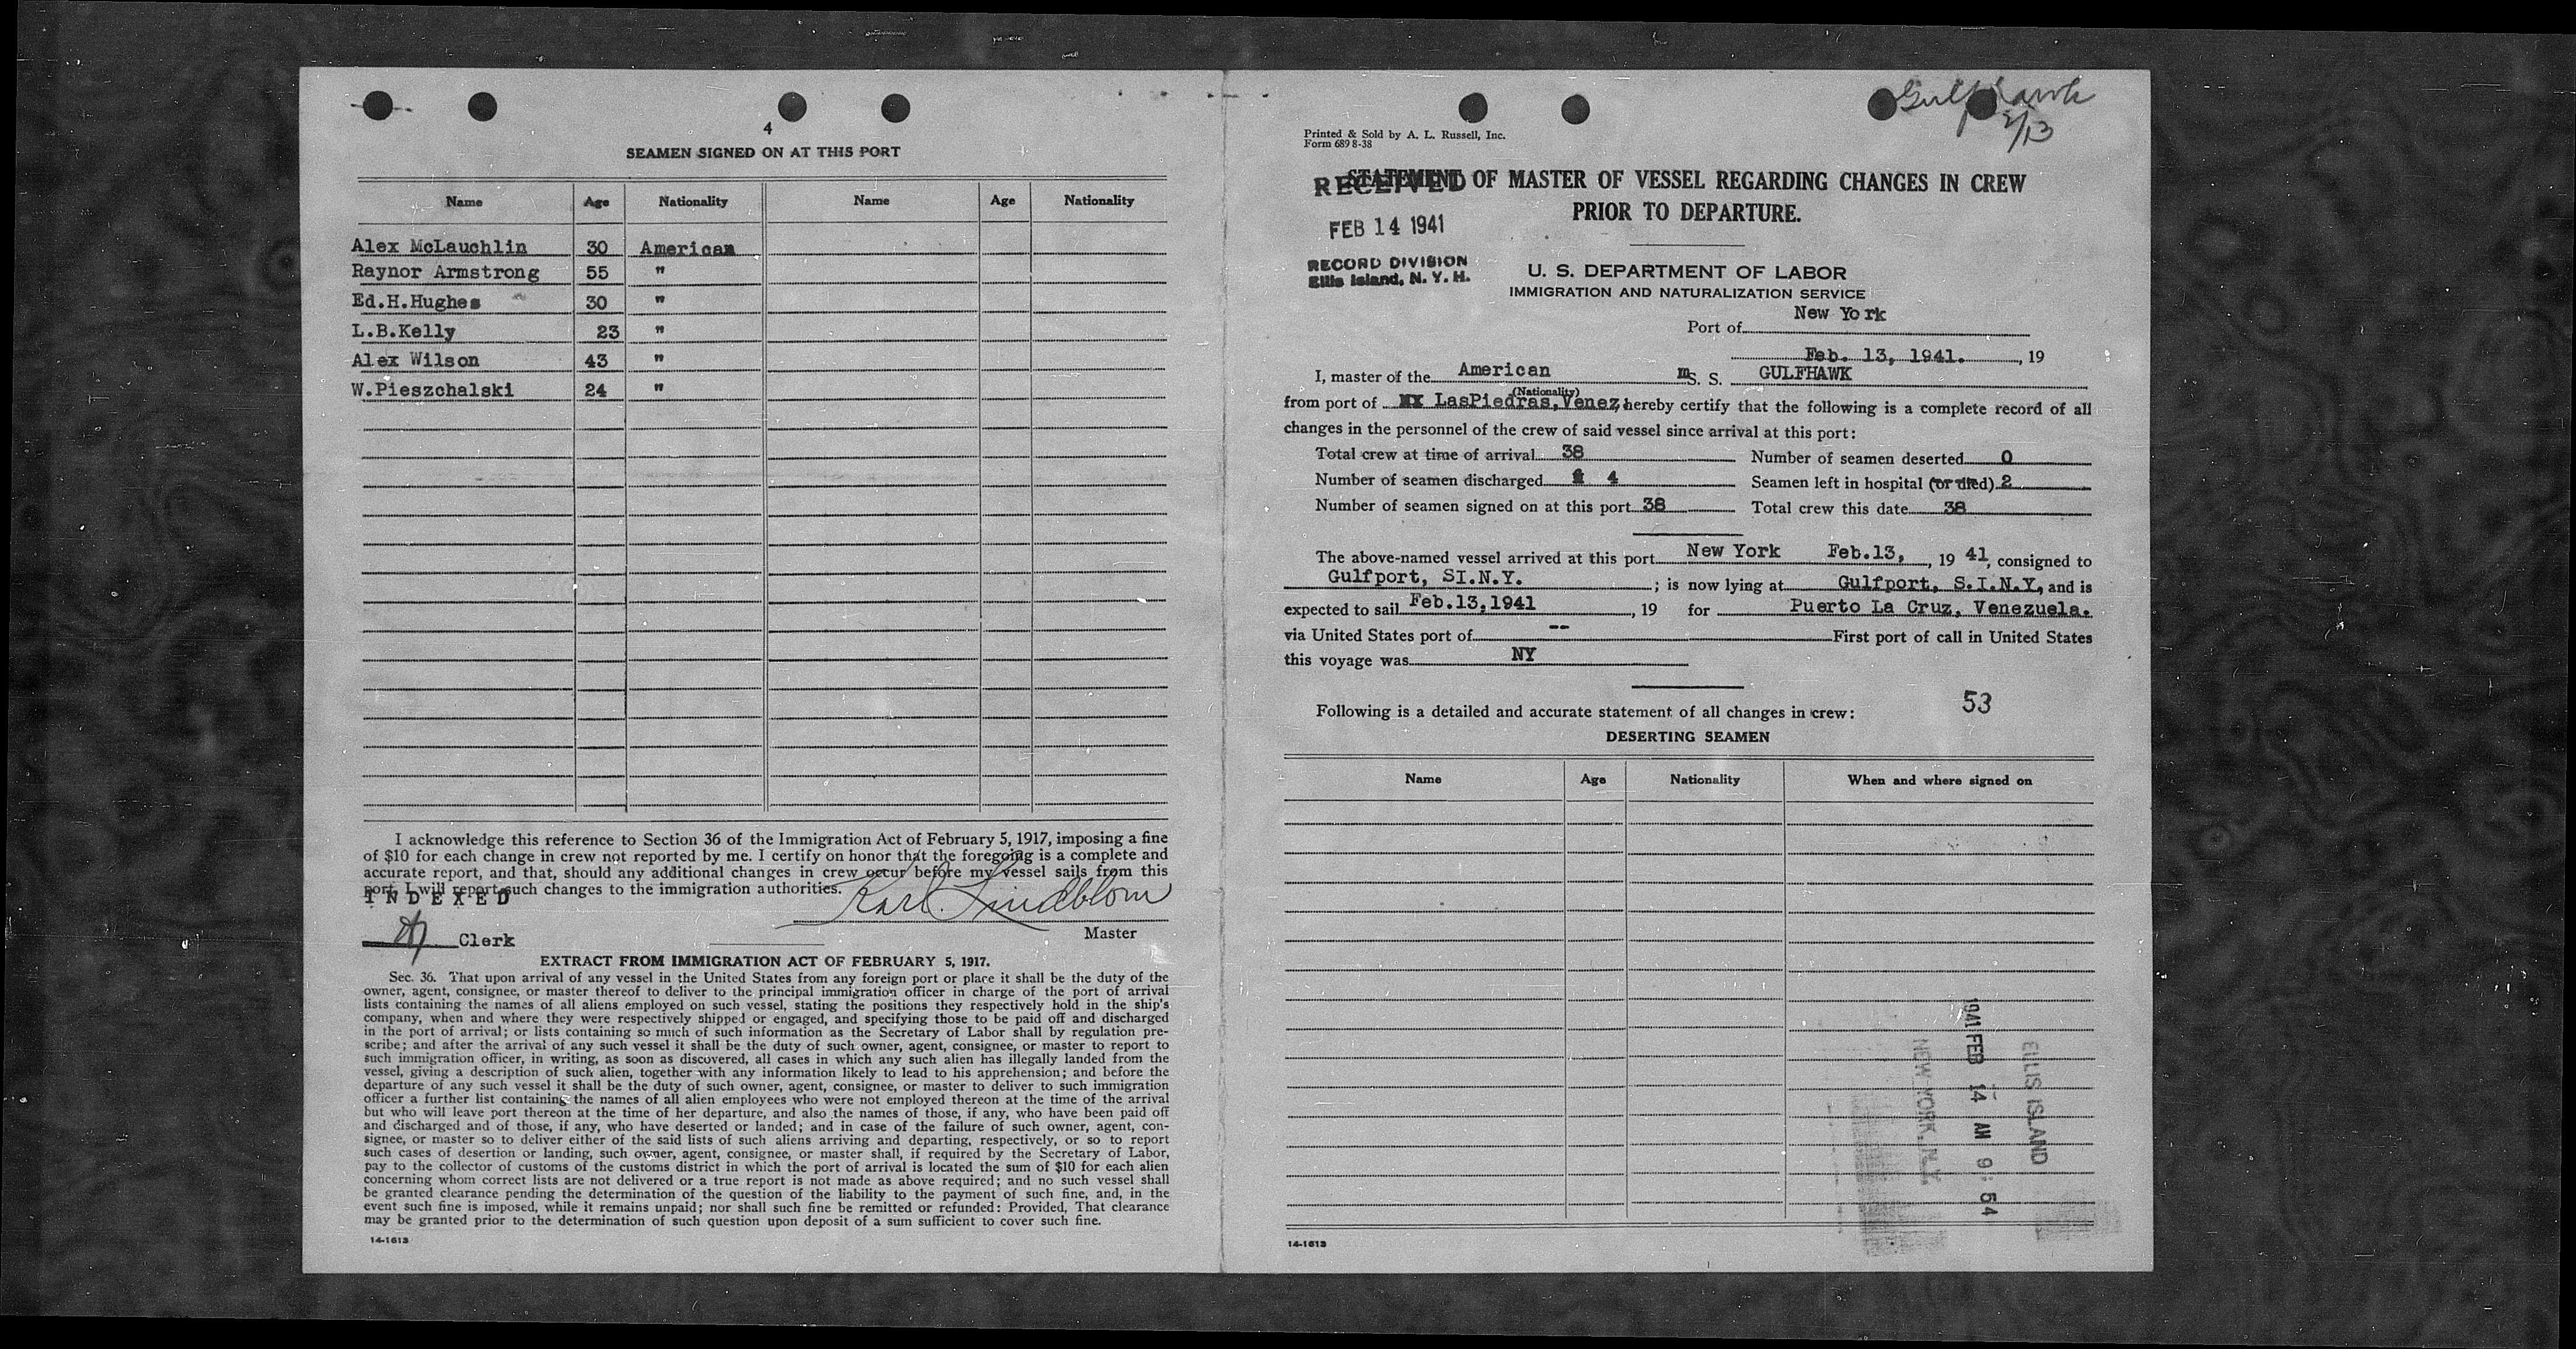 4
SEAMEN SIGNED ON AT THIS PORT
Name Age Nationality Name Age Nationality
Alex McLauchlin 30 American
Raynor Armstrong 55 "
Ed.H.Hughes 30 "
L.B.Kelly 23 "
Alex Wilson 43 "
W.Pieszchalski 24 "
I acknowledge this reference to Section 36 of the Immigration Act of February 5, 1917, imposing a fine
of $10 for each change in crew not reported by me. I certify on honor that the foregoing is a complete and
accurate report, and that, should any additional changes in crew occur before my vessel sails from this
port, I will report such changes to the immigration authorities.
INDEXED
Karl Lindblom
Clerk
Master
EXTRACT FROM IMMIGRATION ACT OF FEBRUARY 5, 1917.
Sec. 36. That upon arrival of any vessel in the United States from any foreign port or place it shall be the duty of the
owner, agent, consignee, or master thereof to deliver to the principal immigration officer in charge of the port of arrival
lists containing the names of all aliens employed on such vessel, stating the positions they respectively hold in the ship's
company, when and where they were respectively shipped or engaged, and specifying those to be paid off and discharged
in the port of arrival; or lists containing so much of such information as the Secretary of Labor shall by regulation pre-
scribe; and after the arrival of any such vessel it shall be the duty of such owner, agent, consignee, or master to report to
such immigration officer, in writing, as soon as discovered, all cases in which any such alien has illegally landed from the
vessel, giving a description of such alien, together with any information likely to lead to his apprehension; and before the
departure of any such vessel it shall be the duty of such owner, agent, consignee, or master to deliver to such immigration
officer a further list containing the names of all alien employees who were not employed thereon at the time of the arrival
but who will leave port thereon at the time of her departure, and also the names of those, if any, who have been paid off
and discharged and of those, if any, who have deserted or landed; and in case of the failure of such owner, agent, con-
signee, or master so to deliver either of the said lists of such aliens arriving and departing, respectively, or so to report
such cases of desertion or landing, such owner, agent, consignee, or master shall, if required by the Secretary of Labor,
pay to the collector of customs of the customs district in which the port of arrival is located the sum of $10 for each alien
concerning whom correct lists are not delivered or a true report is not made as above required; and no such vessel shall
be granted clearance pending the determination of the question of the liability to the payment of such fine, and, in the
event such fine is imposed, while it remains unpaid; nor shall such fine be remitted or refunded: Provided, That clearance
may be granted prior to the determination of such question upon deposit of a sum sufficient to cover such fine.
14-1613
Gulfhawk
2/13
Printed & Sold by A. L. Russell, Inc.
Form 689 8-38
STATEMENT OF MASTER OF VESSEL REGARDING CHANGES IN CREW
PRIOR TO DEPARTURE.
RECEIVED
FEB 14 1941
RECORD DIVISION
Ellis Island, N. Y. H.
U. S. DEPARTMENT OF LABOR
IMMIGRATION AND NATURALIZATION SERVICE
Port of New York
Feb. 13, 1941. , 19
I, master of the American mS. S. GULFHAWK
(Nationality)
from port of LasPiedras,Venez, hereby certify that the following is a complete record of all
changes in the personnel of the crew of said vessel since arrival at this port:
Total crew at time of arrival 38 Number of seamen deserted 0
Number of seamen discharged 4 Seamen left in hospital (or died) 2
Number of seamen signed on at this port 38 Total crew this date 38
The above-named vessel arrived at this port New York Feb.13, , 19 41, consigned to
Gulfport, SI.N.Y. ; is now lying at Gulfport, S.I.N.Y, and is
expected to sail Feb.13,1941 , 19 for Puerto La Cruz, Venezuela.
via United States port of -- First port of call in United States
this voyage was NY
53
Following is a detailed and accurate statement of all changes in crew:
DESERTING SEAMEN
Name Age Nationality When and where signed on
ELLIS ISLAND
1941 FEB 14 AM 9 54
NEW YORK, N.Y.
14-1613